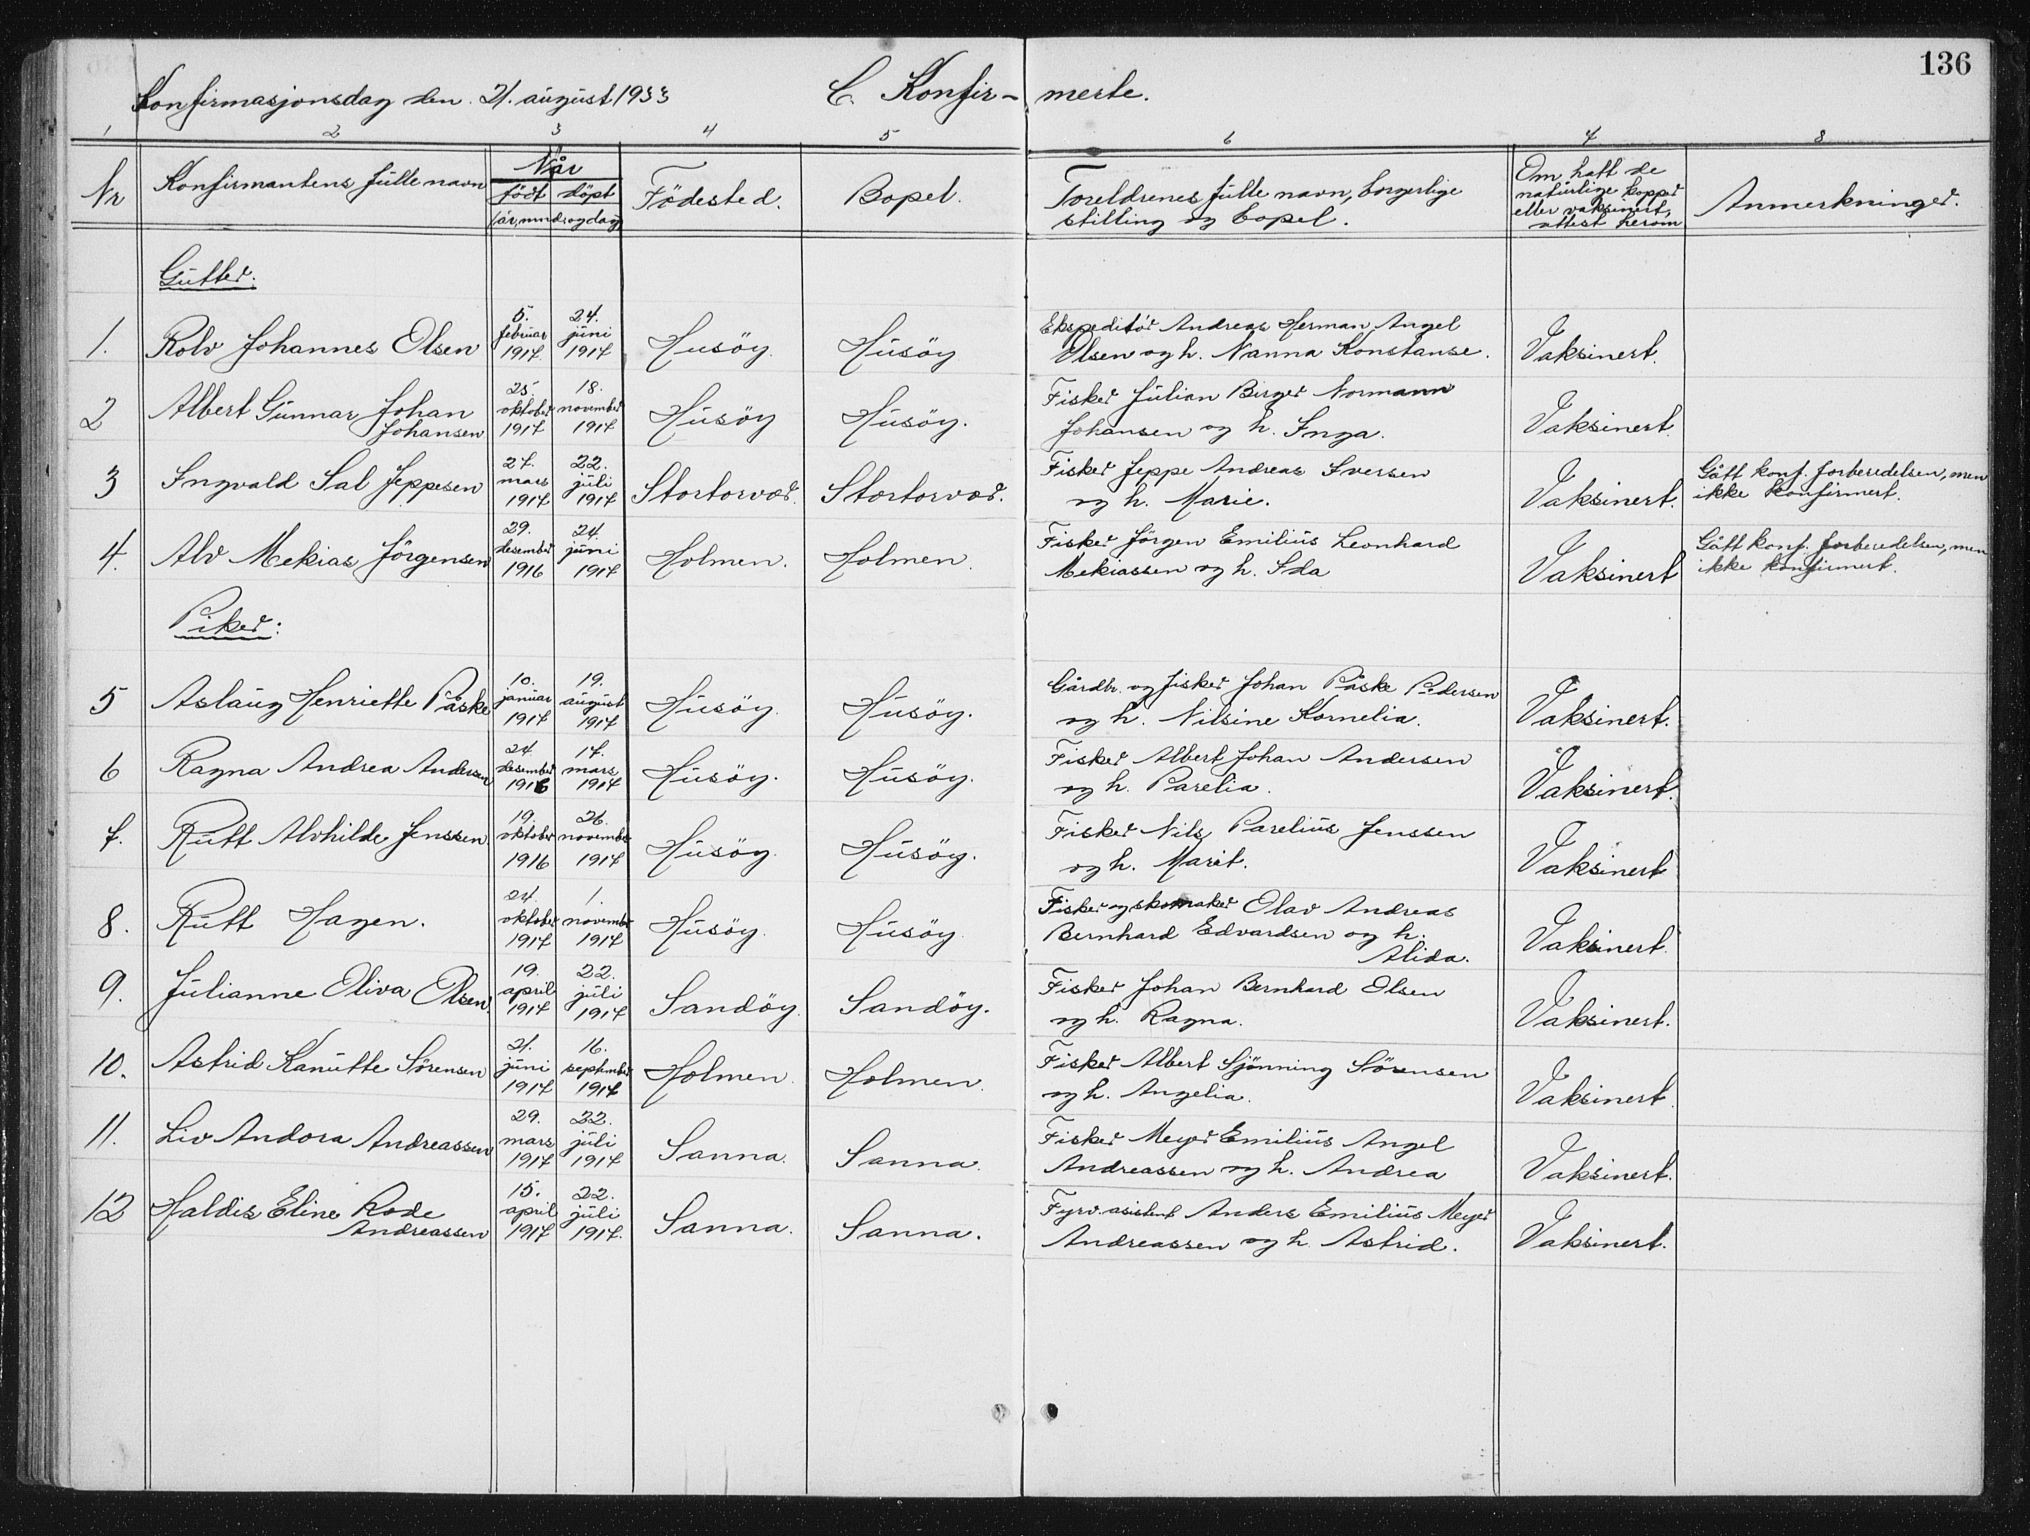 136
Konfirmasjonsdag den 21. august 1933 C. Konfir- merte.
1 2 3 4 5 6 7 8
Nr Konfirmantens fulle navn Når født døpt (år, mnd. og dag) Födested. Bopel. Foreldrenes fulle navn, borgerlige stilling og bopel. Om hatt de natürlige kopper eller vaksinert, attest herom Anmerkninger.
Gutter:
1. Rolv Johannes Olsen 5. februar 1917 24. juni 1917 Husöy. Husöy Ekspeditör Andreas Herman Angel Olsen og h. Nanna Konstanse. Vaksinert.
2 Albert Gunnar Johan Johansen 25. oktober 1917 18. november 1917 Husöy Husöy. Fisker Julian Birger Normann Johansen og h. Inga. Vaksinert.
3 Ingvald Sal Jeppesen 27. mars 1917 22. juli 1917 Stortorvær. Stortorvær. Fisker Jeppe Andreas Iversen og h. Marie. Vaksinert. Gått konf. forberedelsen, men ikke konfirmert.
4. Alv Mekias Jörgensen 29. desember 1916 24. juni 1917 Holmen. Holmen. Fisker Jörgen Emilius Leonhard Mekiassen og h. Ida Vaksinert Gått konf. forberedelsen, men ikke konfirmert.
Piker:
5 Aslaug Henriette Påske 10. januar 1917 19. august 1917 Husöy. Husöy. Gårdbr. og fisker Johan Påske Pedersen og h. Nilsine Kornelia. Vaksinert.
6 Ragna Andrea Andersen 24. desember 1916 17. mars 1917 Husöy. Husöy. Fisker Albert Johan Andersen og h. Parelia. Vaksinert.
7. Rutt Alvhilde Jenssen 19. oktober 1916 26. november 1917 Husöy. Husöy. Fisker Nils Parelius Jenssen og h. Marit. Vaksinert
8. Rutt Hagen. 24. oktober 1917 1. november 1917 Husöy. Husöy. Fisker og skomaker Olav Andreas Bernhard Edvardsen og h. Alida. Vaksinert.
9. Julianne Oliva Olsen. 19. april 1917 22. juli 1917 Sandöy. Sandöy. Fisker Johan Bernhard Olsen og h. Ragna. Vaksinert.
10. Astrid Kanutte Sörensen 21. juni 1917 16. september 1917 Holmen. Holmen. Fisker Albert Sjönning Sörensen og h. Angelia. Vaksinert.
11. Liv Andora Andreassen 29. mars 1917 22. juli 1917 Sanna. Sanna. Fisker Meyer Emilius Angel Andreassen og h. Andrea Vaksinert.
12 Haldis Eline Rode Andreassen 15. april 1917 22. juli 1917. Sanna. Sanna. Fyrv. asistent Anders Emilius Meyer Andreassen og h. Astrid. Vaksinert.